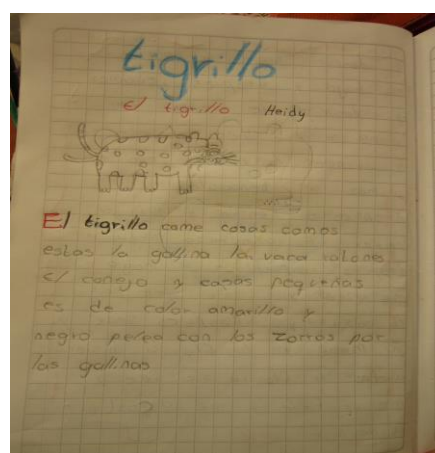 tigrillo
El tigrillo Heidy
El tigrillo come cosas comos
estas la gallina la vaca ratones
el conejo y cosas pequeñas
es de color amarillo y
negro pelea con los zorros por
las gallinas